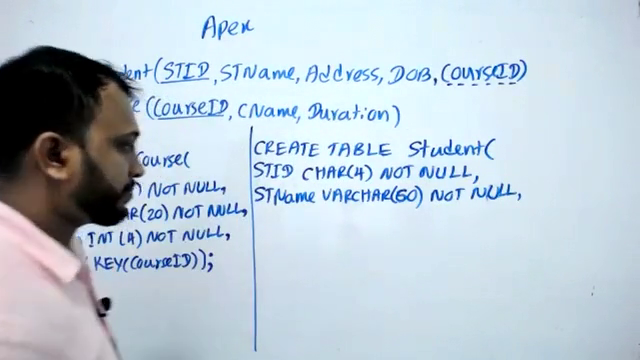 Apex
(STID, STName, Address, DOB, (CourseID)
(CourseID, CName, Duration)
Course(
NOT NULL,
(20) NOT NULL,
INT (4) NOT NULL,
KEY(CourseID));
CREATE TABLE Student(
STID CHAR(4) NOT NULL,
STName VARCHAR(50) NOT NULL,